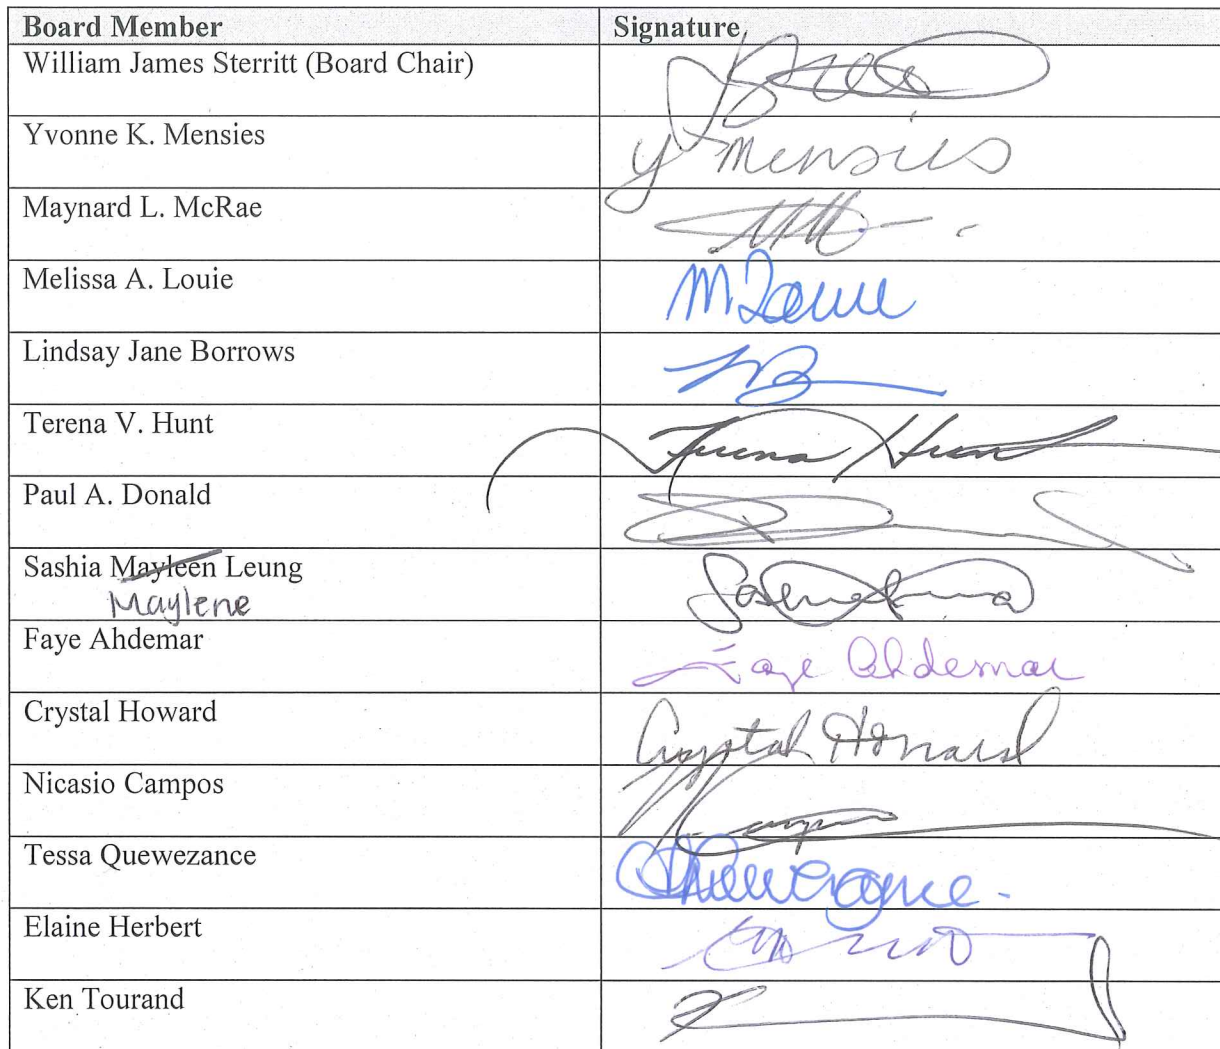 Board Member Signature
William James Sterritt (Board Chair)
Yvonne K. Mensies Y Mensies
Maynard L. McRae
Melissa A. Louie M Louie
Lindsay Jane Borrows LB
Terena V. Hunt Terena Hunt
Paul A. Donald
Sashia Mayleen Leung
Maylene
Faye Ahdemar Faye Ahdemar
Crystal Howard Crystal Howard
Nicasio Campos
Tessa Quewezance
Elaine Herbert
Ken Tourand